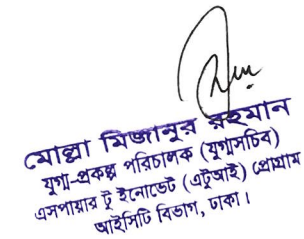 মোল্লা মিজানুর রহমান
যুগ্ম-প্রকল্প পরিচালক (যুগ্মসচিব)
এসপায়ার টু ইনোভেট (এটুআই) প্রোগ্রাম
আইসিটি বিভাগ, ঢাকা।